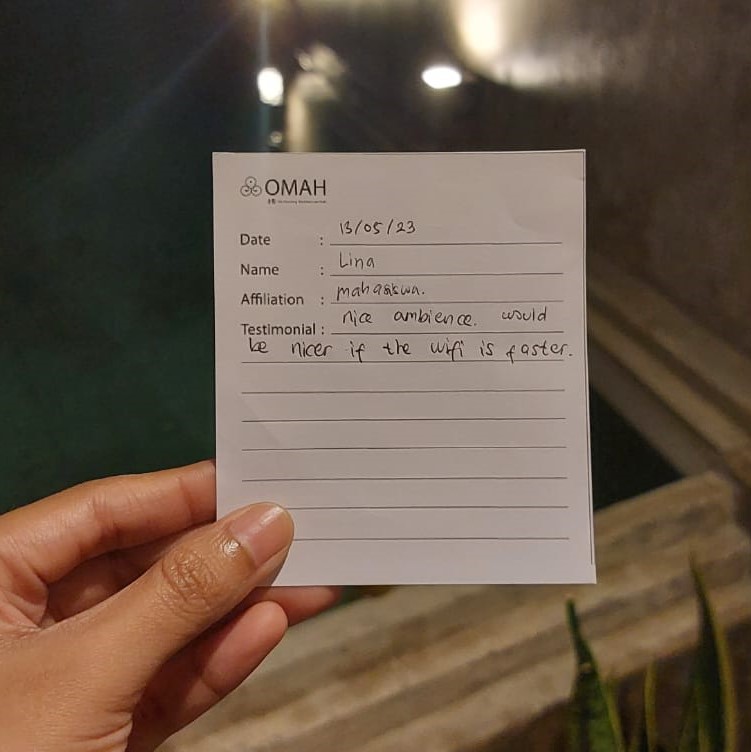 OMAH
Date : 13/05/23
Name : Lina
Affiliation : mahasiswa.
Testimonial : nice ambience. would
be nicer if the wifi is faster.